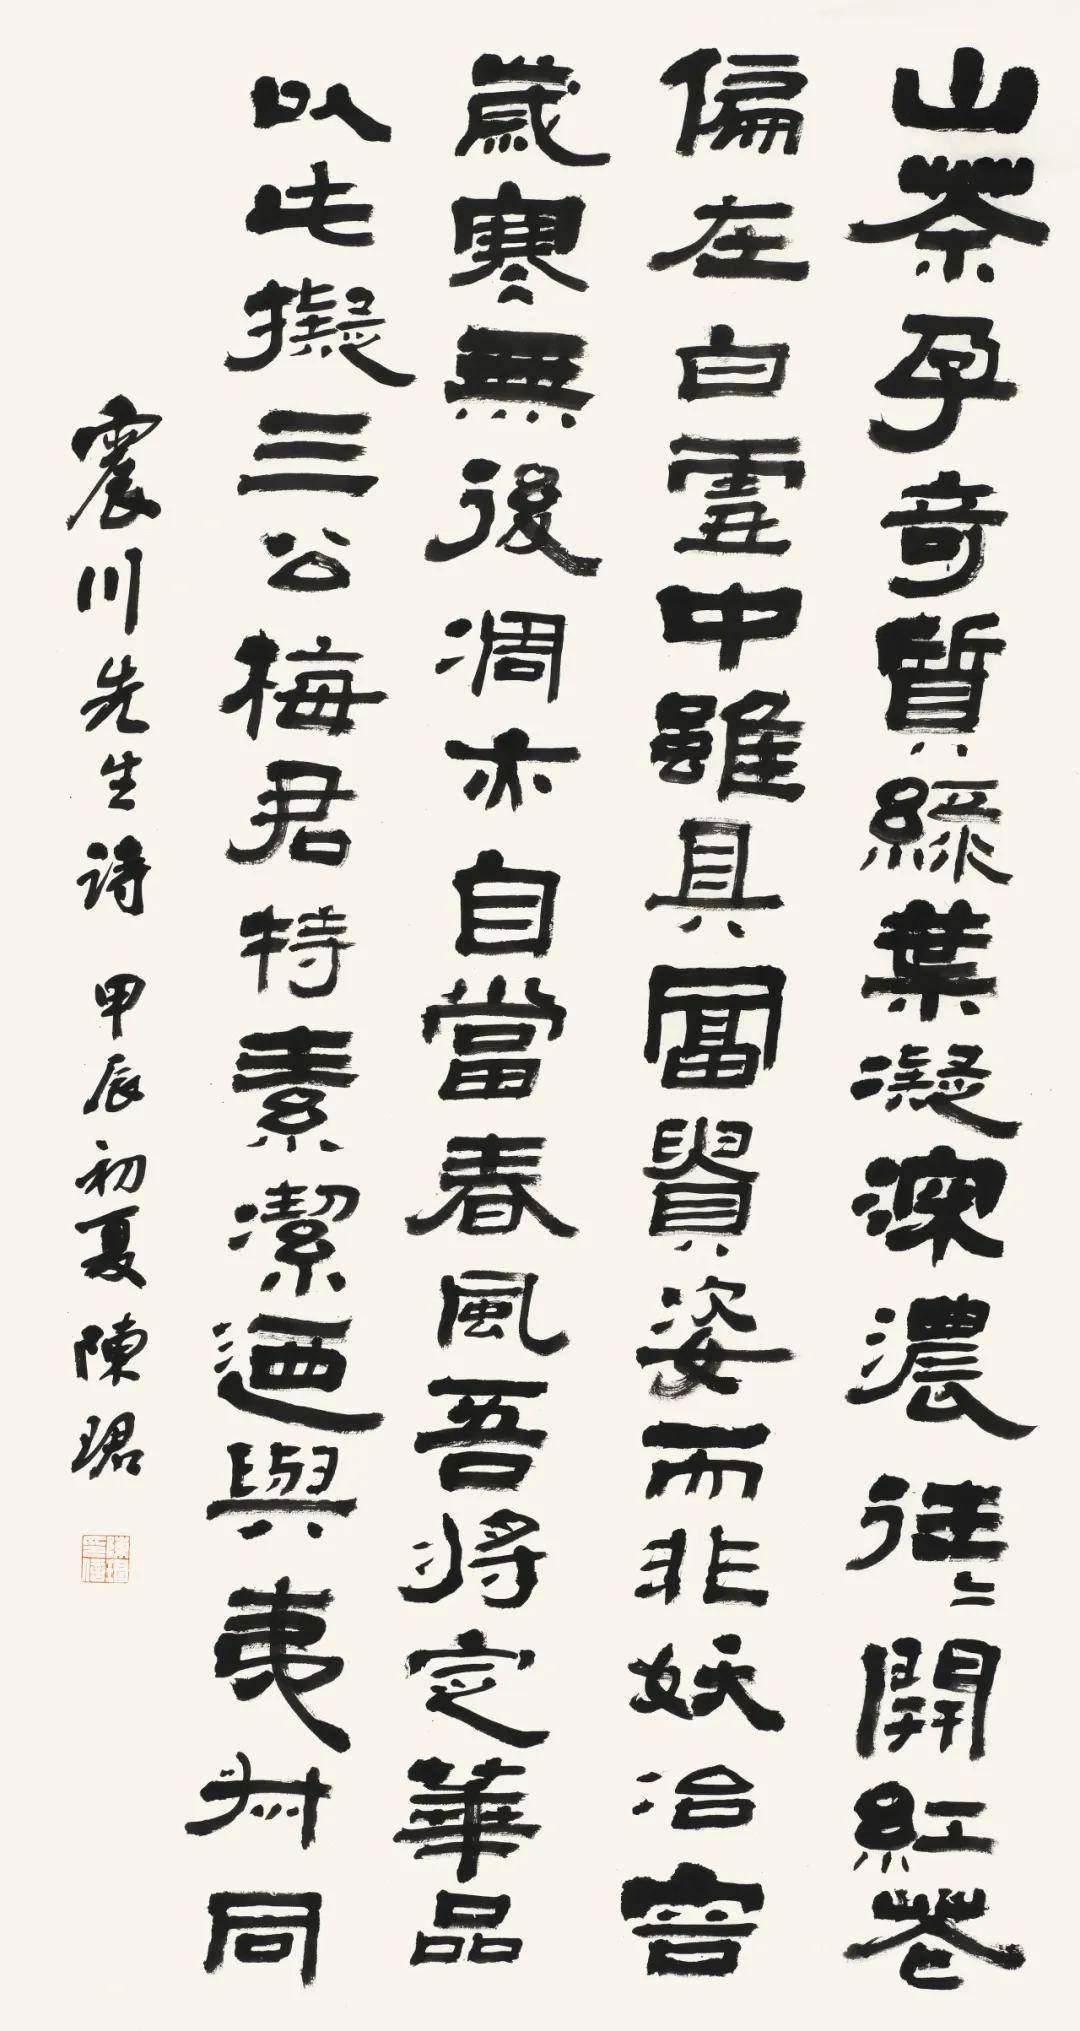 山茶孕奇質綠葉凝深濃往〻開紅花
偏在白雪中雖具富貴姿而非妖冶容
歲寒無後凋亦自當春風吾將定華品
以此擬三公梅君特素潔迺與夷叔同
震川先生詩 甲辰初夏 陳珺